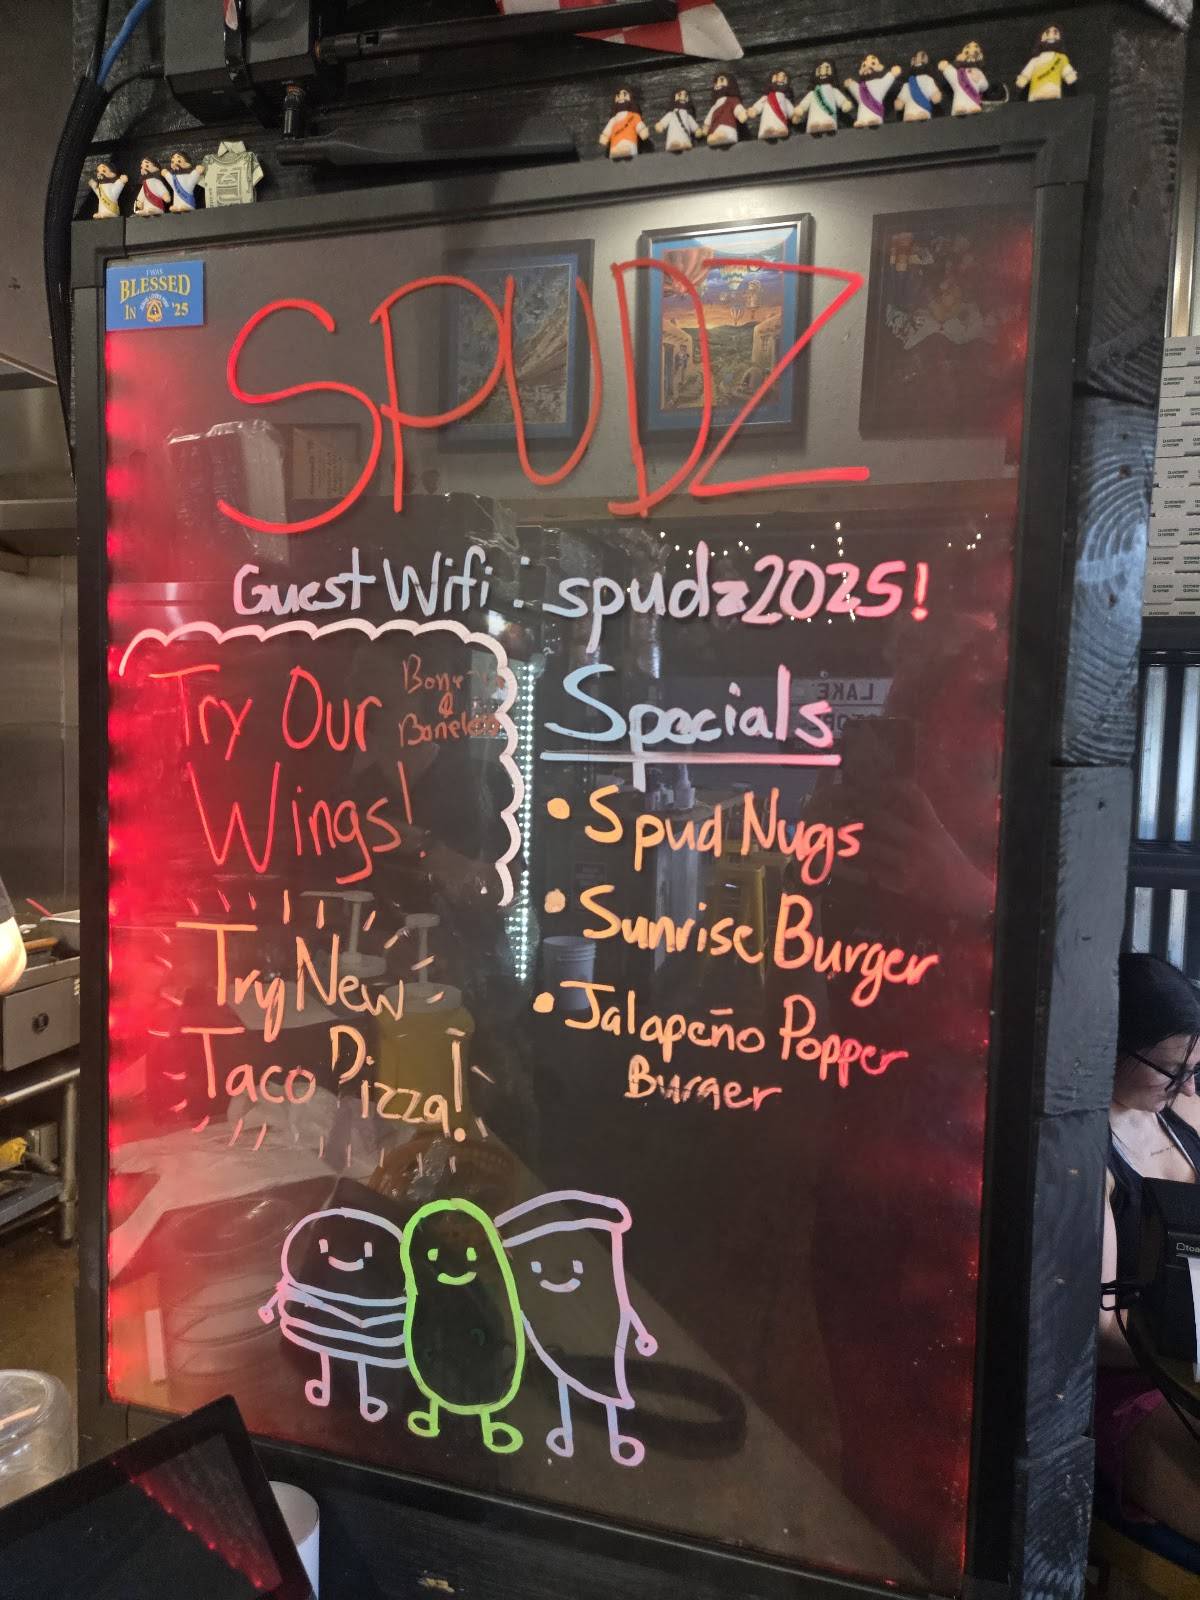 I WAS
BLESSED
IN '25
SPUDZ
Guest Wifi: spudz2025!
Try Our
Bone-in
&
Boneless
Wings!
Try New
Taco Pizza!
Specials
• Spud Nugs
• Sunrise Burger
• Jalapeño Popper
Burger
LAKE